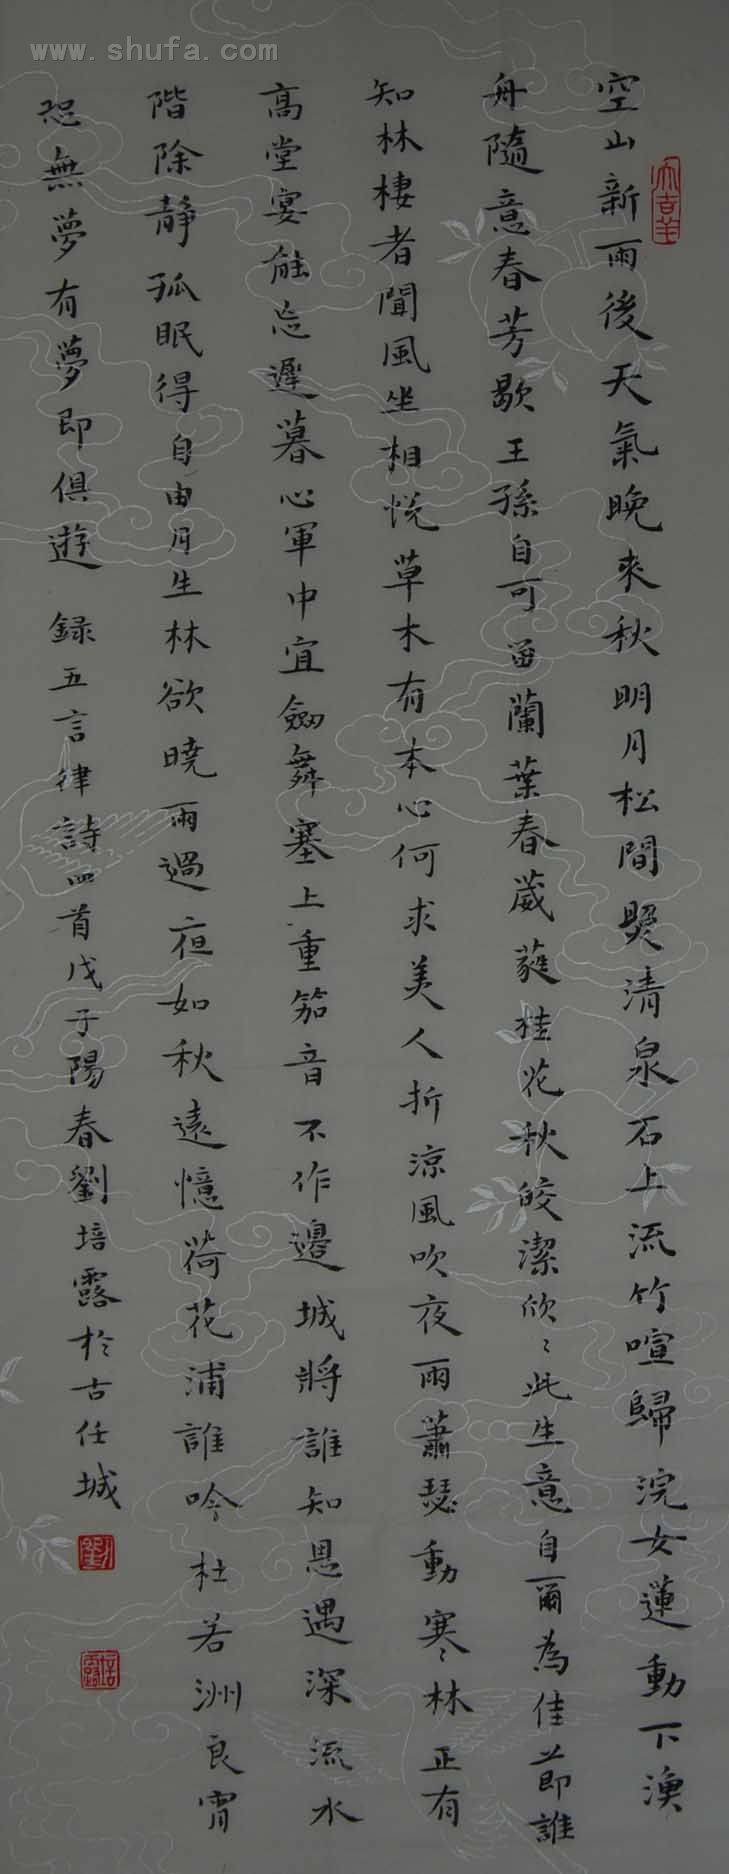 www.shufa.com
大吉羊
空山新雨後天氣晚來秋明月松間照清泉石上流竹喧歸浣女蓮動下漁
舟隨意春芳歇王孫自可留蘭葉春葳蕤桂花秋皎潔欣〻此生意自爾為佳節誰
知林棲者聞風坐相悅草木有本心何求美人折涼風吹夜雨蕭瑟動寒〻林正有
高堂宴能忘遲暮心軍中宜劍舞塞上重笳音不作邊城將誰知恩遇深流水
階除靜孤眠得自由月生林欲曉雨過夜如秋遠憶荷花浦誰吟杜若洲良宵
恐無夢有夢即俱遊 錄五言律詩四首戊子陽春劉培露於古任城
劉
培露